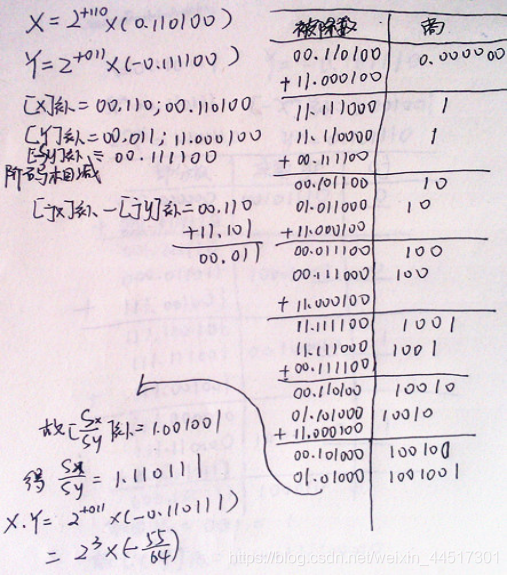 X = 2^{+110} × (0.110100)
Y = 2^{+011} × (-0.111100)
[X]补 = 00.110; 00.110100
[Y]补 = 00.011; 11.000100
[-Sy]补 = 00.111100
阶码相减
[jx]补 - [jy]补 = 00.110
+ 11.101
00.011
故[Sx/Sy]补 = 1.001001
得 Sx/Sy = 1.11011
X.Y = 2^{+011} × (-0.110111)
= 2^3 × (-55/64)
被除数 商
00.110100 0.000000
+ 11.000100
11.111000 1
11.110000 1
+ 00.111100
00.101100 10
01.011000 10
+ 11.000100
00.011100 100
00.111000 100
+ 11.000100
11.111100 1001
11.111000 1001
+ 00.111100
00.110100 10010
01.101000 10010
+ 11.000100
00.101000
01.01000 1001001
https://blog.csdn.net/weixin_44517301